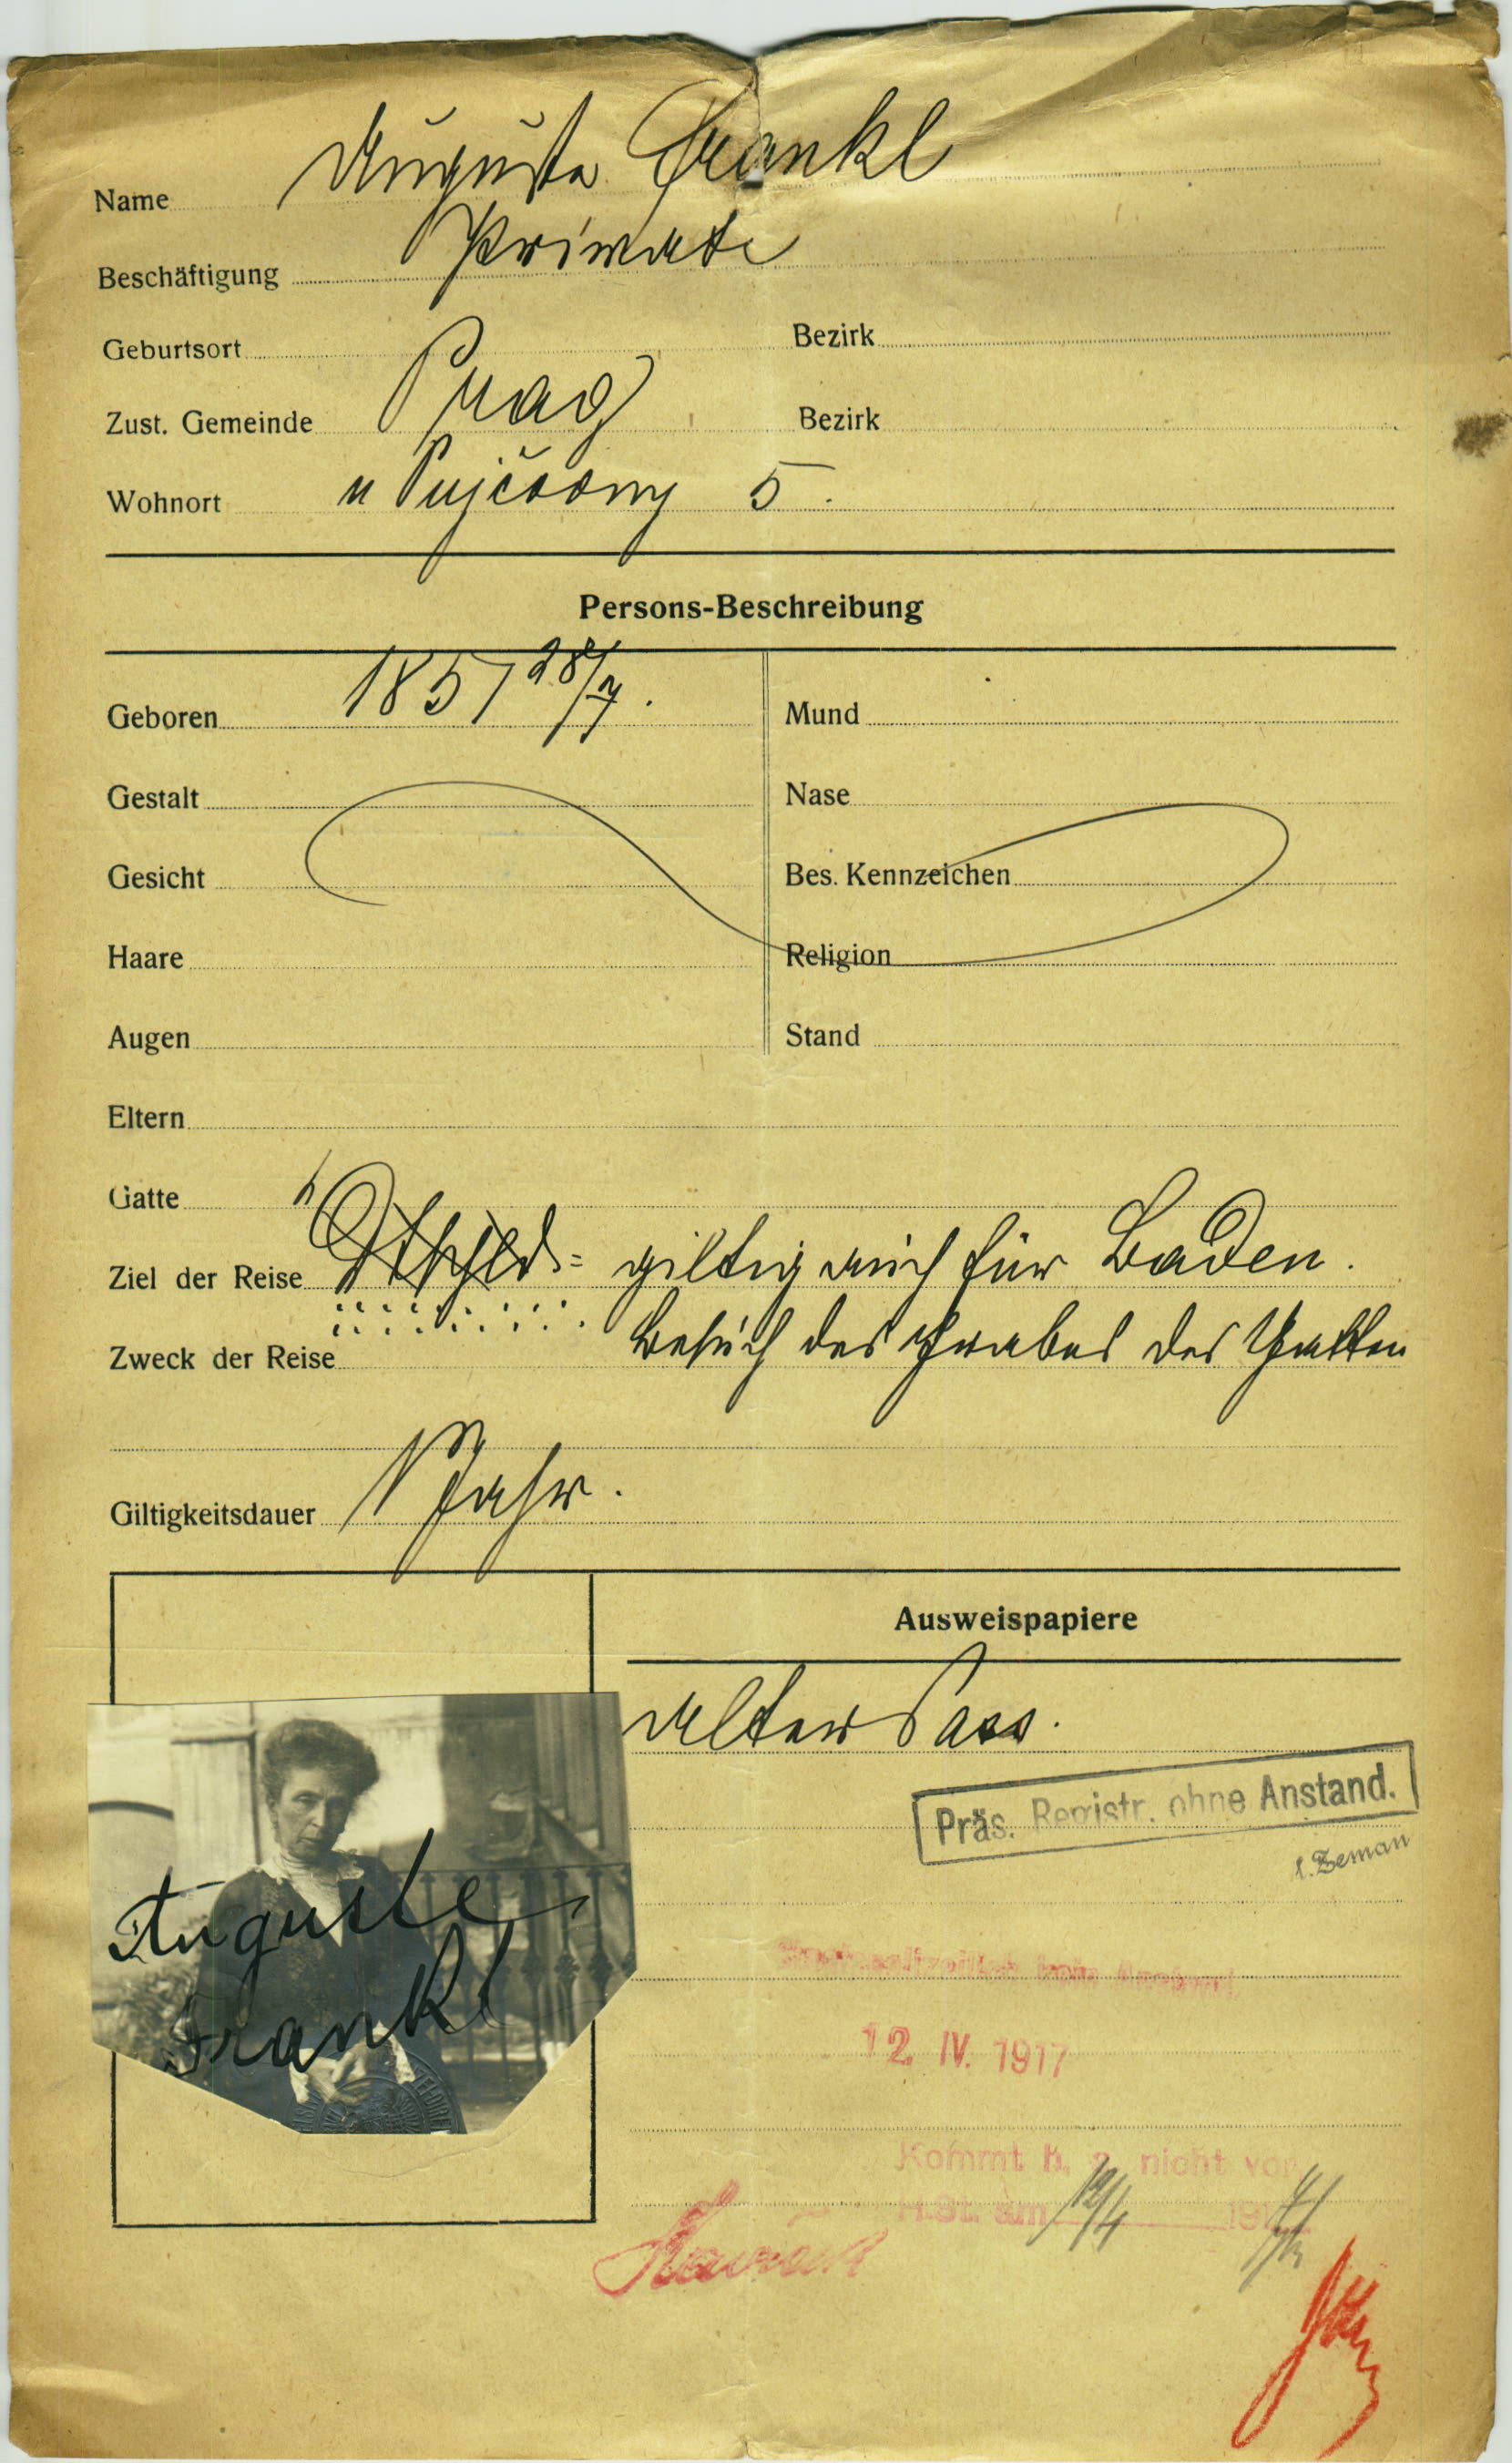 Name Auguste Frankl
Beschäftigung Private
Geburtsort Bezirk
Zust. Gemeinde Prag Bezirk
Wohnort u Pujčovny 5.
Persons-Beschreibung
Geboren 1857 28/7. Mund
Gestalt Nase
Gesicht Bes. Kennzeichen
Haare Religion
Augen Stand
Eltern
Gatte
Ziel der Reise giltig auch für Baden.
Zweck der Reise Besuch des Grabes des Gatten
Giltigkeitsdauer 1 Jahr.
Ausweispapiere
alter Pass.
Präs. Registr. ohne Anstand.
Zeman
Auguste
Frankl
12. IV. 1917
Kommt h. a. nicht vor
am 12/4 191